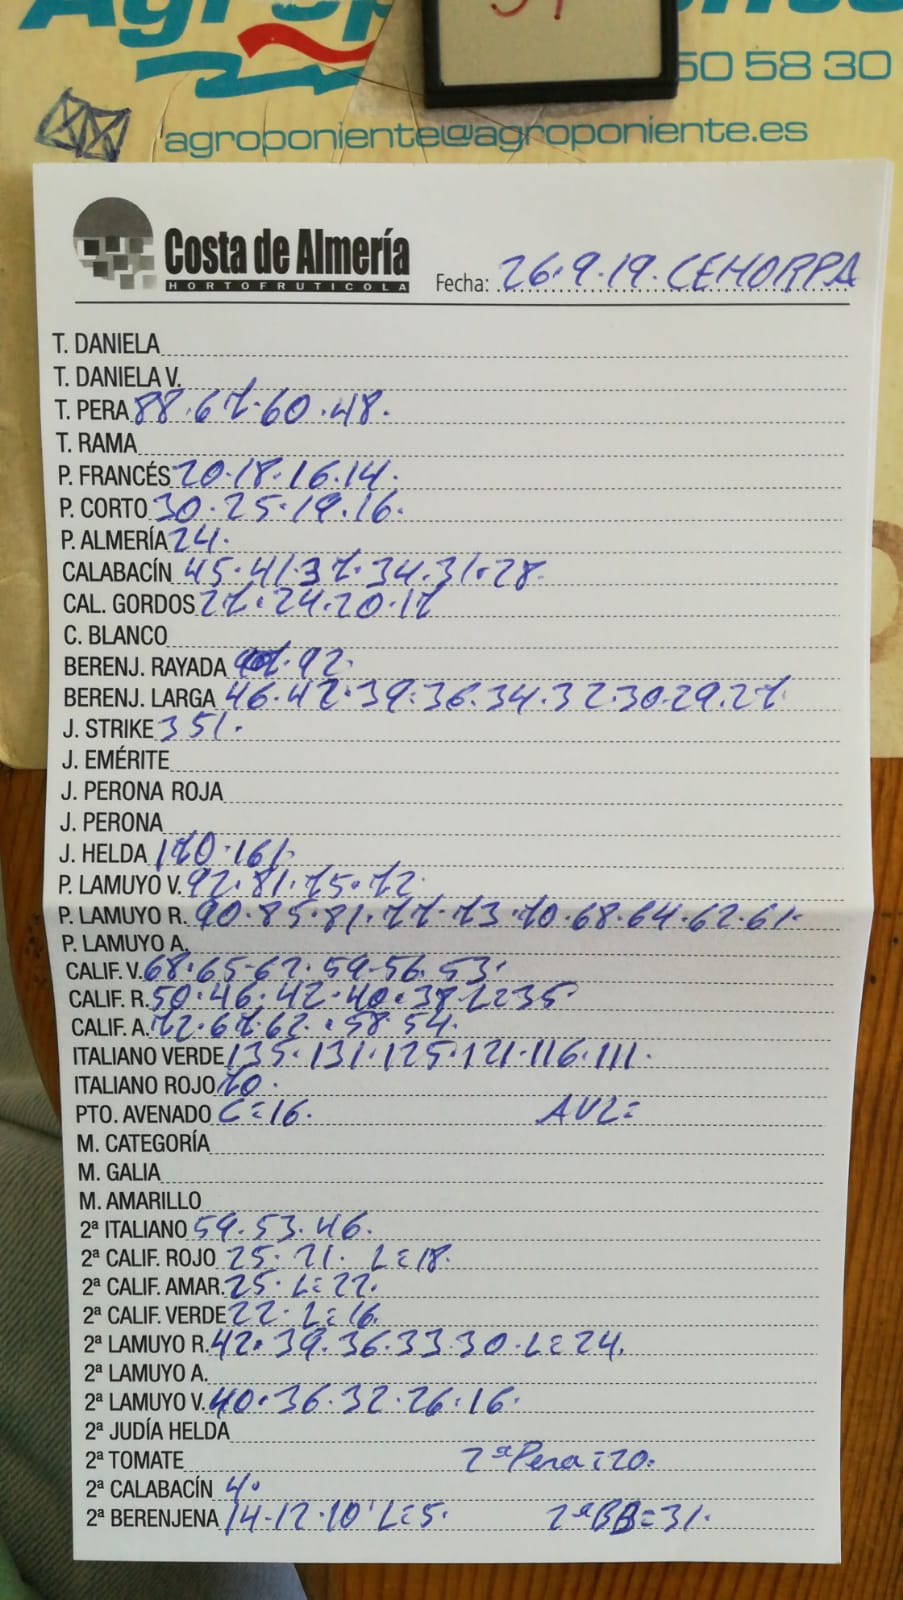 50 58 30
agroponiente@agroponiente.es
Costa de Almería
HORTOFRUTICOLA
Fecha: 26.9.19. CEHORPA
T. DANIELA
T. DANIELA V.
T. PERA 88.67.60.48.
T. RAMA
P. FRANCÉS 20.18.16.14.
P. CORTO 30.25.19.16.
P. ALMERÍA 24.
CALABACÍN 45.41.37.34.31.28.
CAL. GORDOS 27.24.20.17
C. BLANCO
BERENJ. RAYADA 92.
BERENJ. LARGA 46.42.39.36.34.32.30.29.27.
J. STRIKE 351.
J. EMÉRITE
J. PERONA ROJA
J. PERONA
J. HELDA 170.161.
P. LAMUYO V. 92.81.75.72.
P. LAMUYO R. 90.85.81.77.73.70.68.64.62.61.
P. LAMUYO A.
CALIF. V. 68.65.62.59.56.53.
CALIF. R. 50.46.42.40.38.L=35
CALIF. A. 72.67.62.58.54.
ITALIANO VERDE 135.131.125.121.116.111.
ITALIANO ROJO 70.
PTO. AVENADO C=16. AV2=
M. CATEGORÍA
M. GALIA
M. AMARILLO
2ª ITALIANO 59.53.46.
2ª CALIF. ROJO 25.21. L=18.
2ª CALIF. AMAR. 25. L=22.
2ª CALIF. VERDE 22. L=16.
2ª LAMUYO R. 42.39.36.33.30.L=24.
2ª LAMUYO A.
2ª LAMUYO V. 40.36.32.26.16.
2ª JUDÍA HELDA
2ª TOMATE 2ª Pera=20.
2ª CALABACÍN 4.
2ª BERENJENA 14.12.10'L=5. 2ªBB=31.